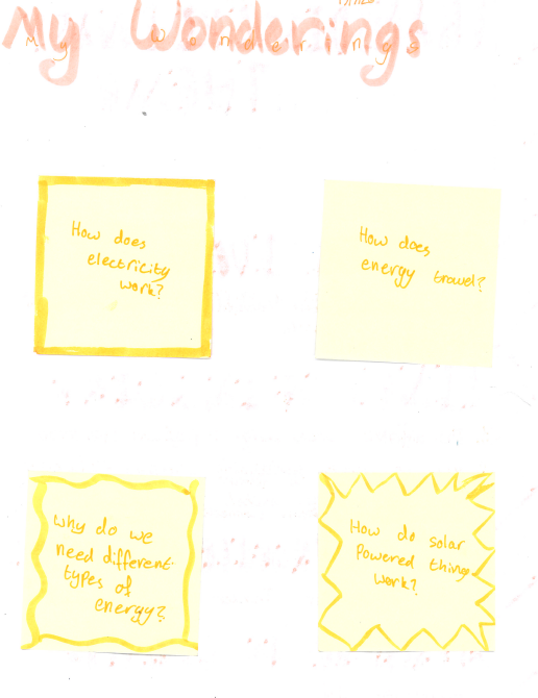 My Wonderings
How does
electricity
work?
How does
energy travel?
why do we
need different
types of
energy?
How do solar
Powered things
work?